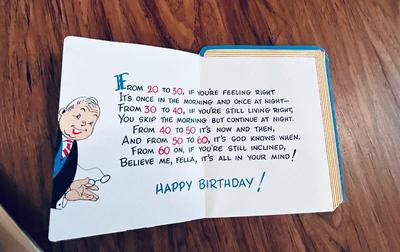 FROM 20 TO 30, IF YOU'RE FEELING RIGHT
IT'S ONCE IN THE MORNING AND ONCE AT NIGHT—
FROM 30 TO 40, IF YOU'RE STILL LIVING RIGHT,
YOU SKIP THE MORNING BUT CONTINUE AT NIGHT.
FROM 40 TO 50 IT'S NOW AND THEN,
AND FROM 50 TO 60, IT'S GOD KNOWS WHEN.
FROM 60 ON, IF YOU'RE STILL INCLINED,
BELIEVE ME, FELLA, IT'S ALL IN YOUR MIND!
HAPPY BIRTHDAY!